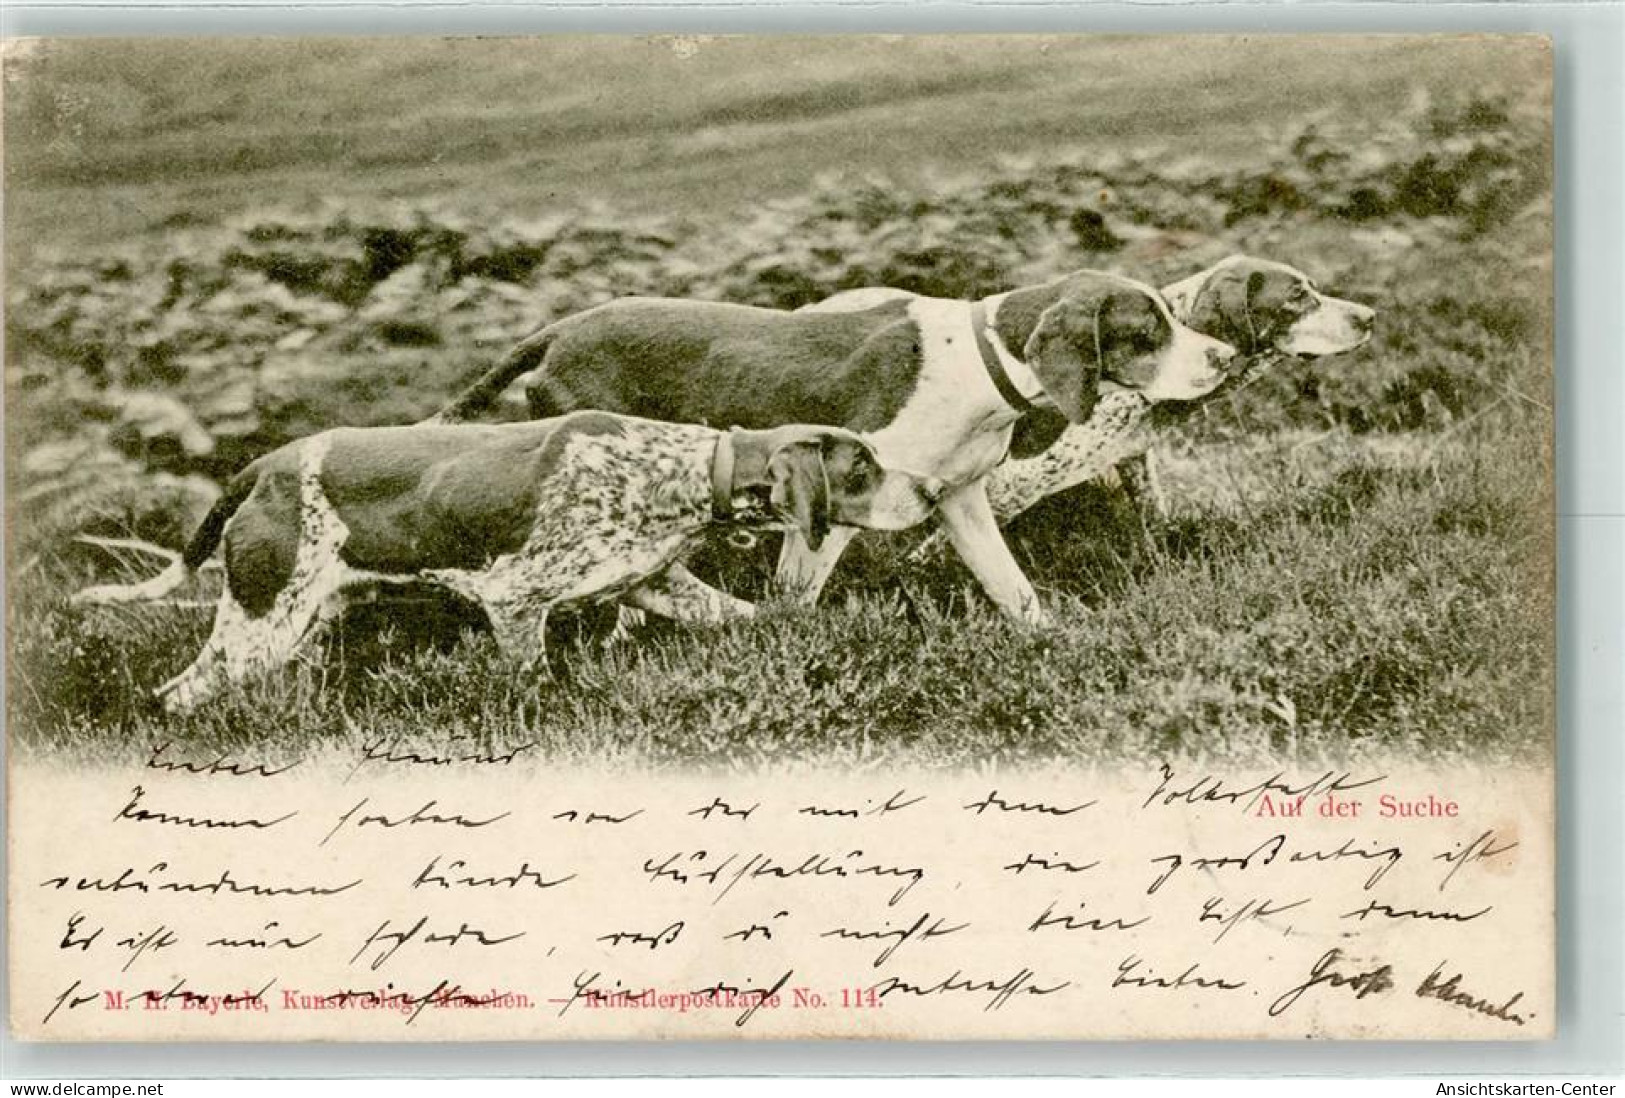 Lieber Freund
Komme soeben von der mit dem Volksfest
Auf der Suche
verbundenen Hunde Ausstellung, die großartig ist.
Es ist nur schade, daß du nicht hier bist, denn
so etwas dürfte für dich Interesse bieten. Gruß
M. H. Bayerle, Kunstverlag, München. — Künstlerpostkarte No. 114.
www.delcampe.net
Ansichtskarten-Center